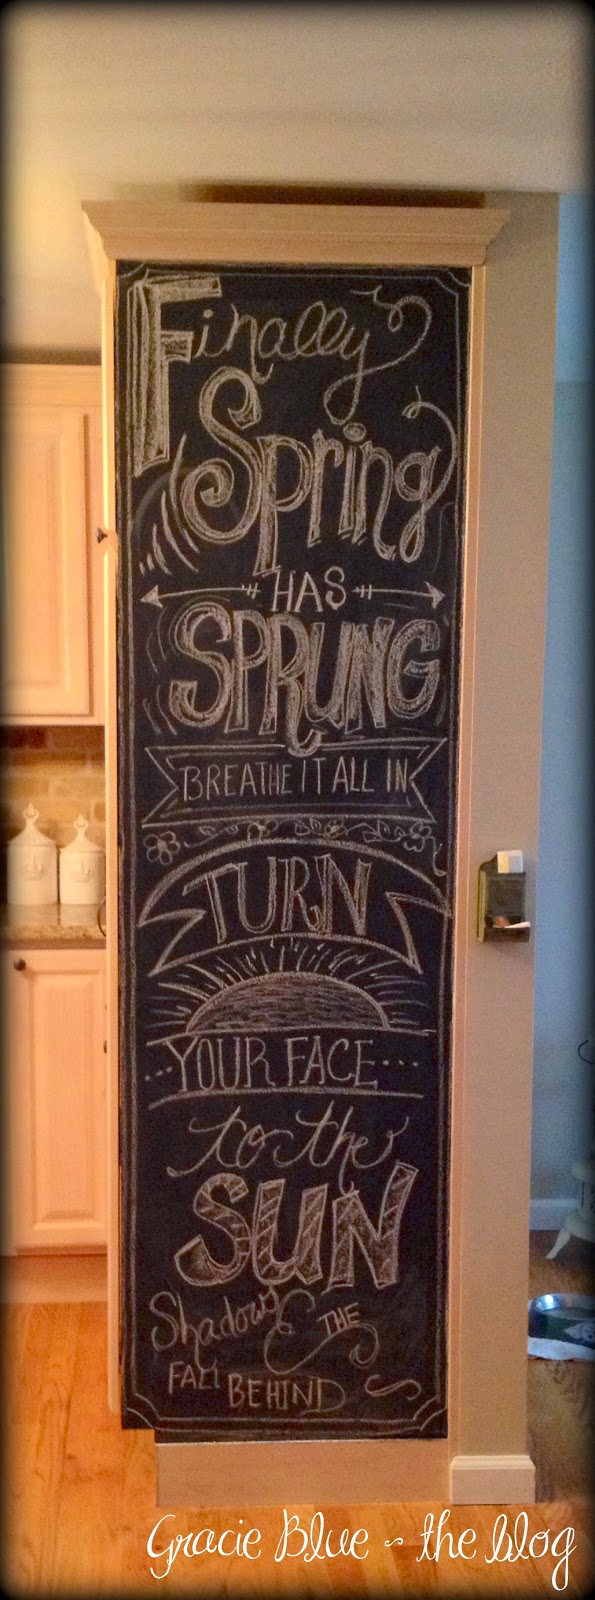 Finally
Spring
HAS
SPRUNG
BREATHE IT ALL IN
TURN
YOUR FACE
to the
SUN
& THE
Shadows
FALL BEHIND
Gracie Blue ~ the blog